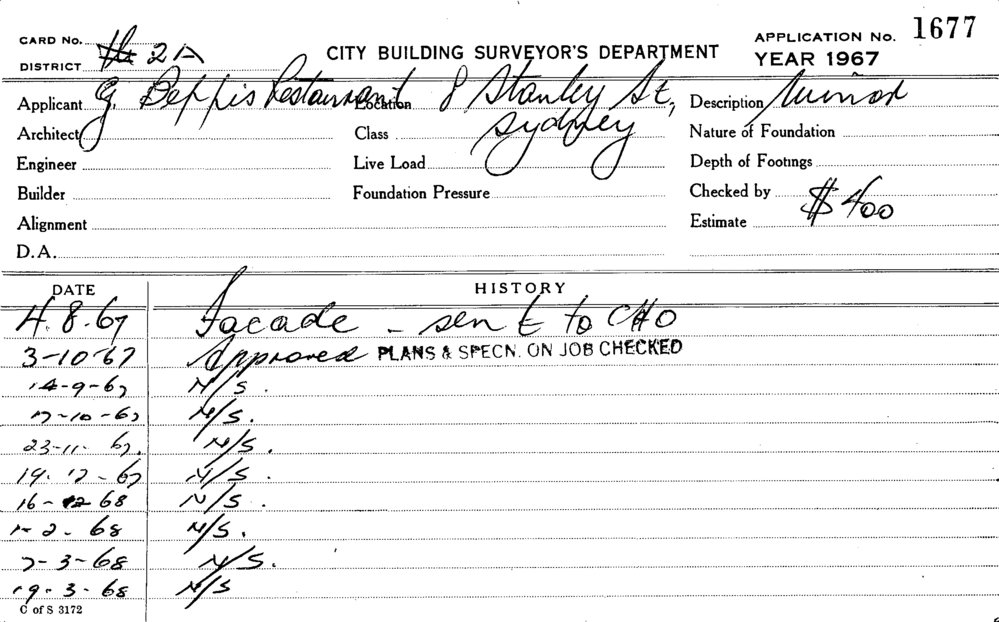 CARD No.
DISTRICT 2A
CITY BUILDING SURVEYOR'S DEPARTMENT
APPLICATION No. 1677
YEAR 1967
Applicant G. Beppis Restaurant Location 8 Stanley St., Sydney Description Minor
Architect Class Nature of Foundation
Engineer Live Load Depth of Footings
Builder Foundation Pressure Checked by
Alignment Estimate $400
D.A.
DATE HISTORY
4.8.67 Facade - sent to CHO
3-10-67 Approved PLANS & SPECN. ON JOB CHECKED
14-9-67 N/S.
17-10-67 N/S.
23-11-67. N/S.
19-12-67 N/S.
16- 68 N/S.
1-2-68 N/S.
7-3-68 N/S.
19-3-68 N/S
C of S 3172